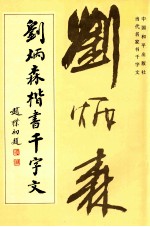 中国和平出版社
当代名家书千字文
劉炳森
劉炳森楷書千字文
趙樸初題